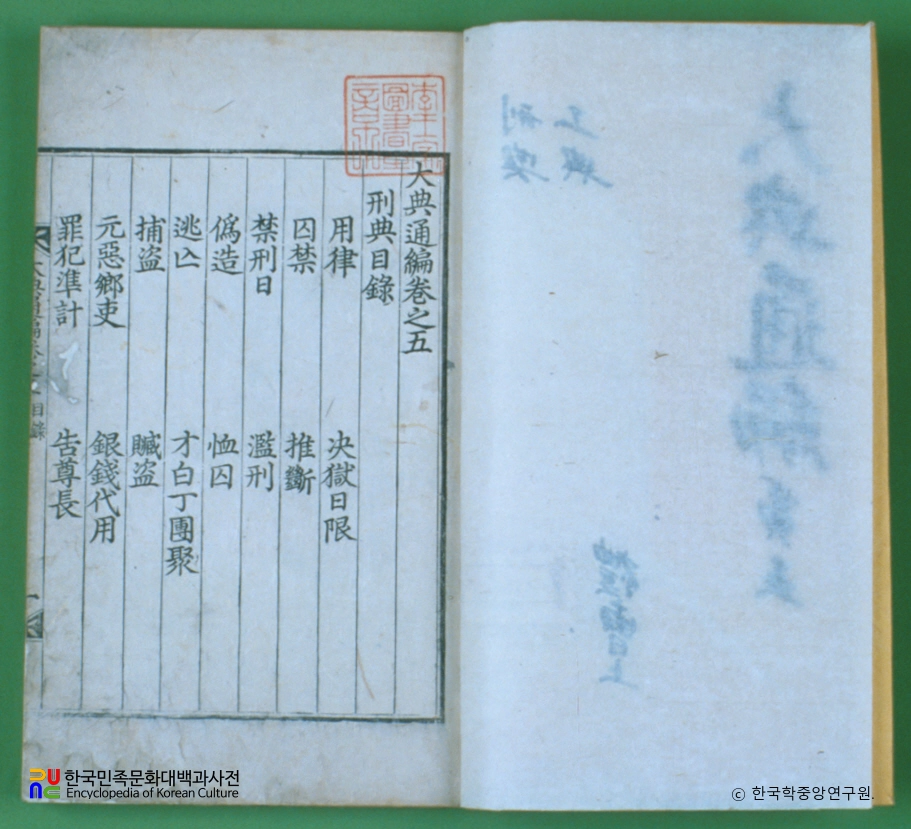 大典通編卷之五
刑典目錄
用律 决獄日限
囚禁 推斷
禁刑日 濫刑
僞造 恤囚
逃亾 才白丁團聚
捕盜 贓盜
元惡鄉吏 銀錢代用
罪犯準計 告尊長
目錄
한국민족문화대백과사전
Encyclopedia of Korean Culture
ⓒ 한국학중앙연구원.